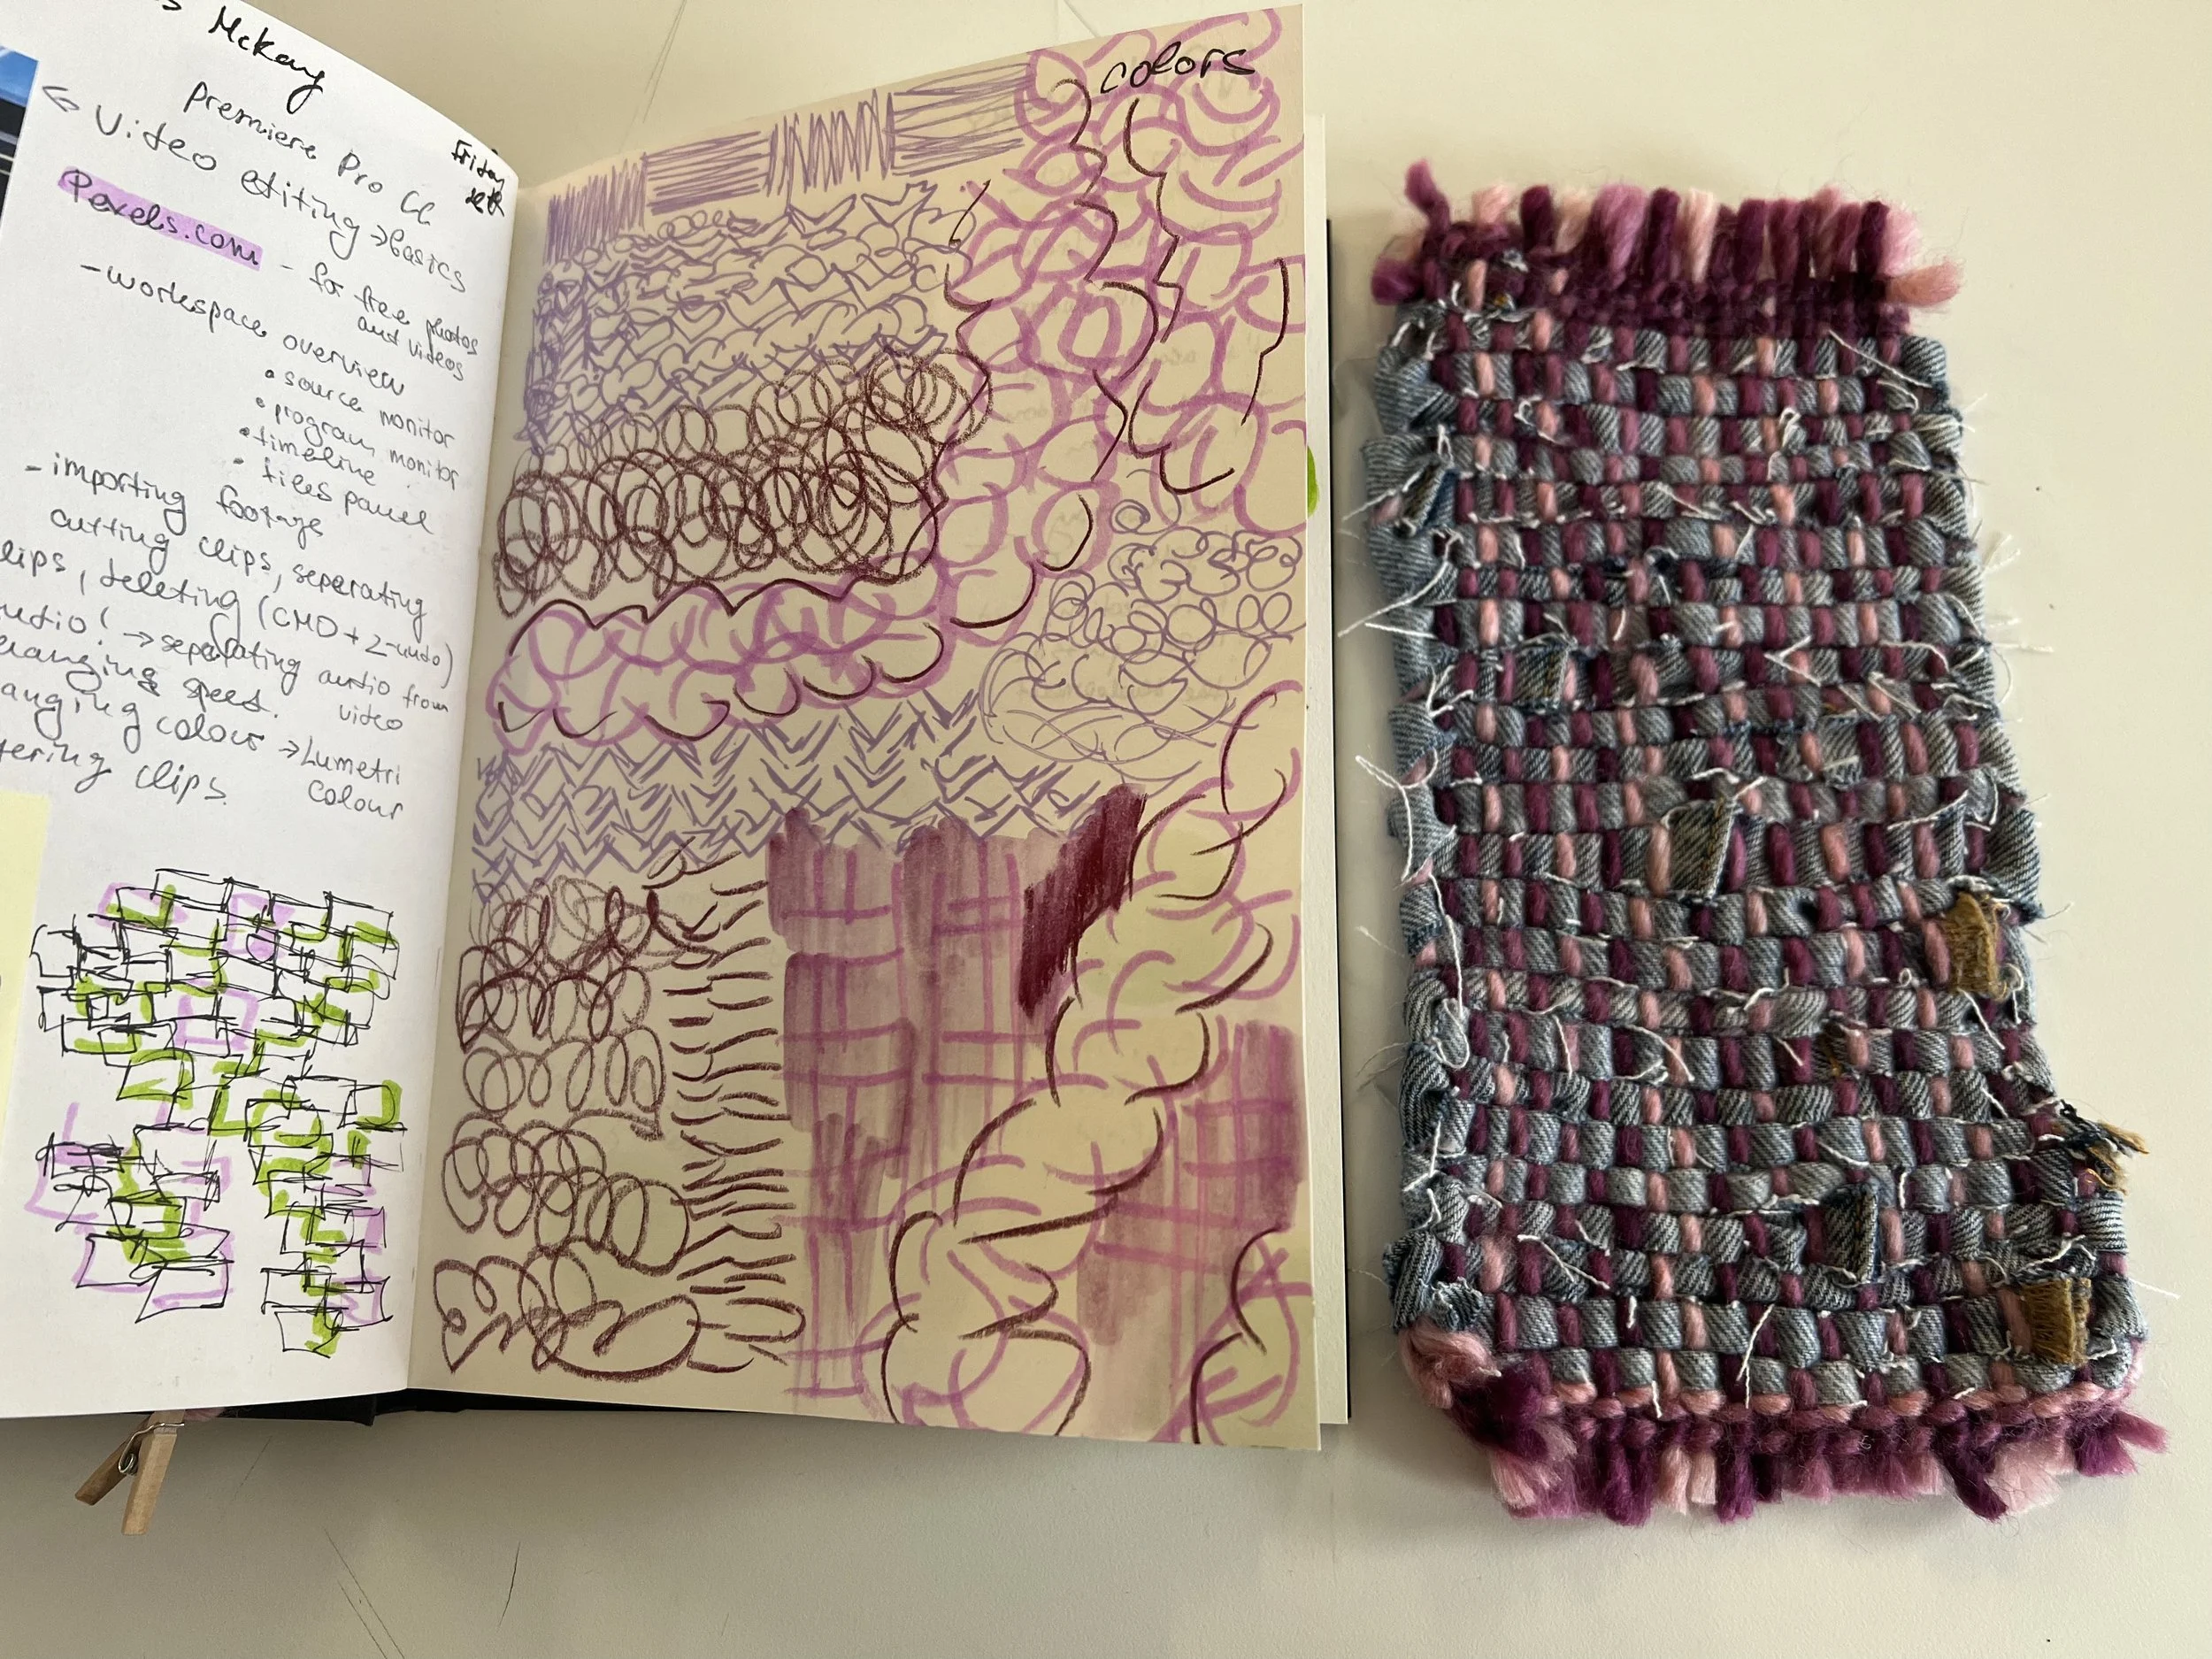 McKay
premiere Pro CC
Friday
← Video editing → basics
Pexels.com - for free photos
and videos
- workspace overview
• source monitor
• program monitor
• timeline
• files panel
- importing footage
cutting clips, seperating
lips, deleting (CMD + Z - undo)
udio! → seperating audio from
video
anging speed.
anging colour → Lumetri
colour
tering clips.
colors